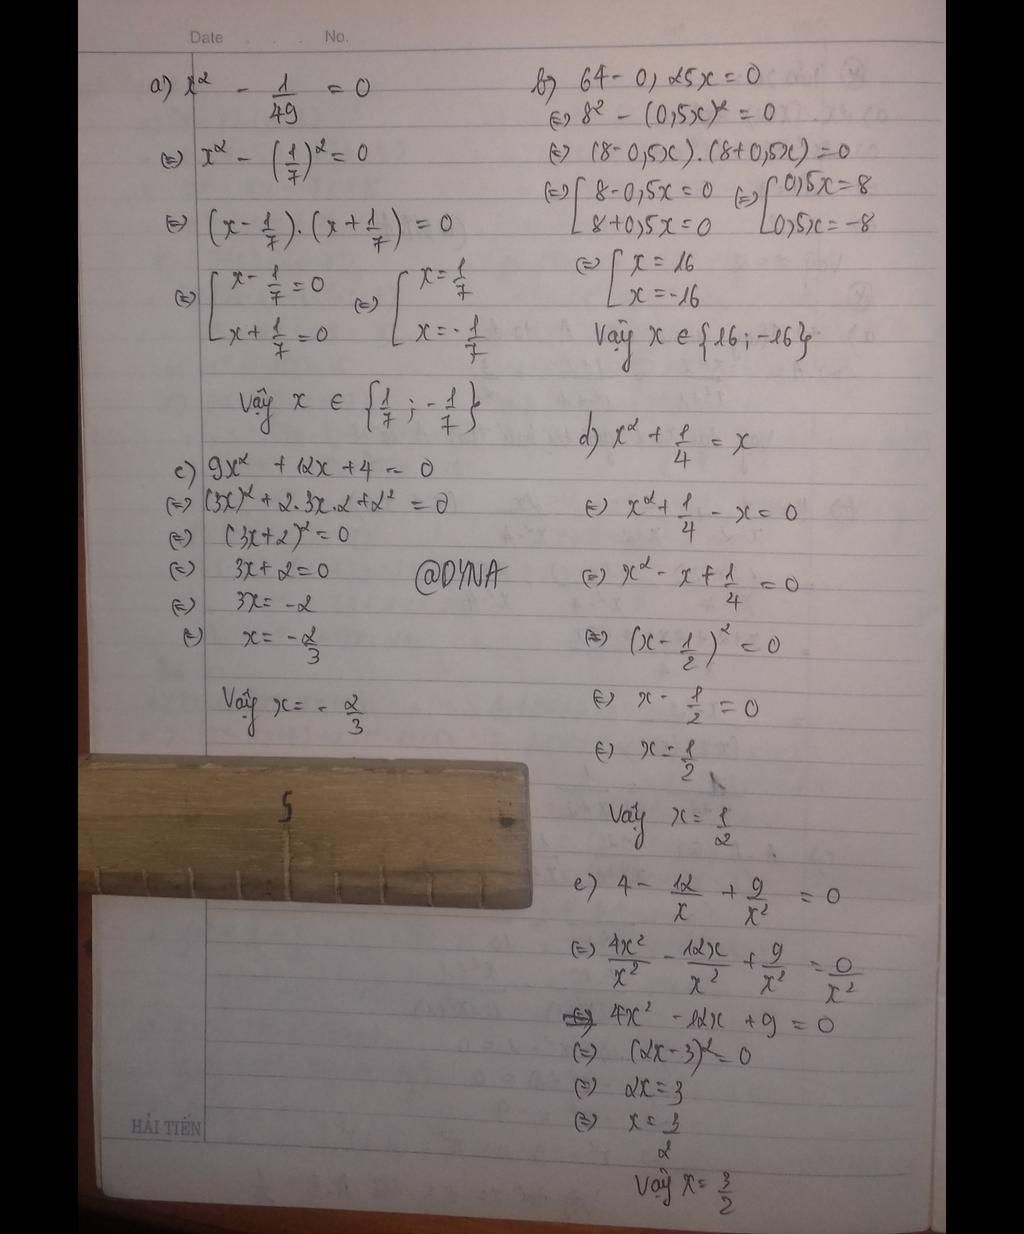 Date . . . No.
a) x² - 1/49 = 0
⇔ x² - (1/7)² = 0
⇔ (x - 1/7).(x + 1/7) = 0
⇔ [ x - 1/7 = 0 ⇔ [ x = 1/7
x + 1/7 = 0 x = -1/7
Vậy x ∈ {1/7 ; -1/7}
b) 64 - 0,25x = 0
⇔ 8² - (0,5x)² = 0
⇔ (8 - 0,5x).(8 + 0,5x) = 0
⇔ [ 8 - 0,5x = 0 ⇔ [ 0,5x = 8
8 + 0,5x = 0 0,5x = -8
⇔ [ x = 16
x = -16
Vậy x ∈ {16 ; -16}
c) 9x² + 12x + 4 = 0
⇔ (3x)² + 2.3x.2 + 2² = 0
⇔ (3x + 2)² = 0
⇔ 3x + 2 = 0
⇔ 3x = -2
⇔ x = -2/3
Vậy x = -2/3
@DYNA
d) x² + 1/4 = x
⇔ x² + 1/4 - x = 0
⇔ x² - x + 1/4 = 0
⇔ (x - 1/2)² = 0
⇔ x - 1/2 = 0
⇔ x = 1/2
Vậy x = 1/2
5
e) 4 - 12/x + 9/x² = 0
⇔ 4x²/x² - 12x/x² + 9/x² = 0/x²
⇔ 4x² - 12x + 9 = 0
⇔ (2x - 3)² = 0
⇔ 2x = 3
⇔ x = 3/2
Vậy x = 3/2
HẢI TIẾN